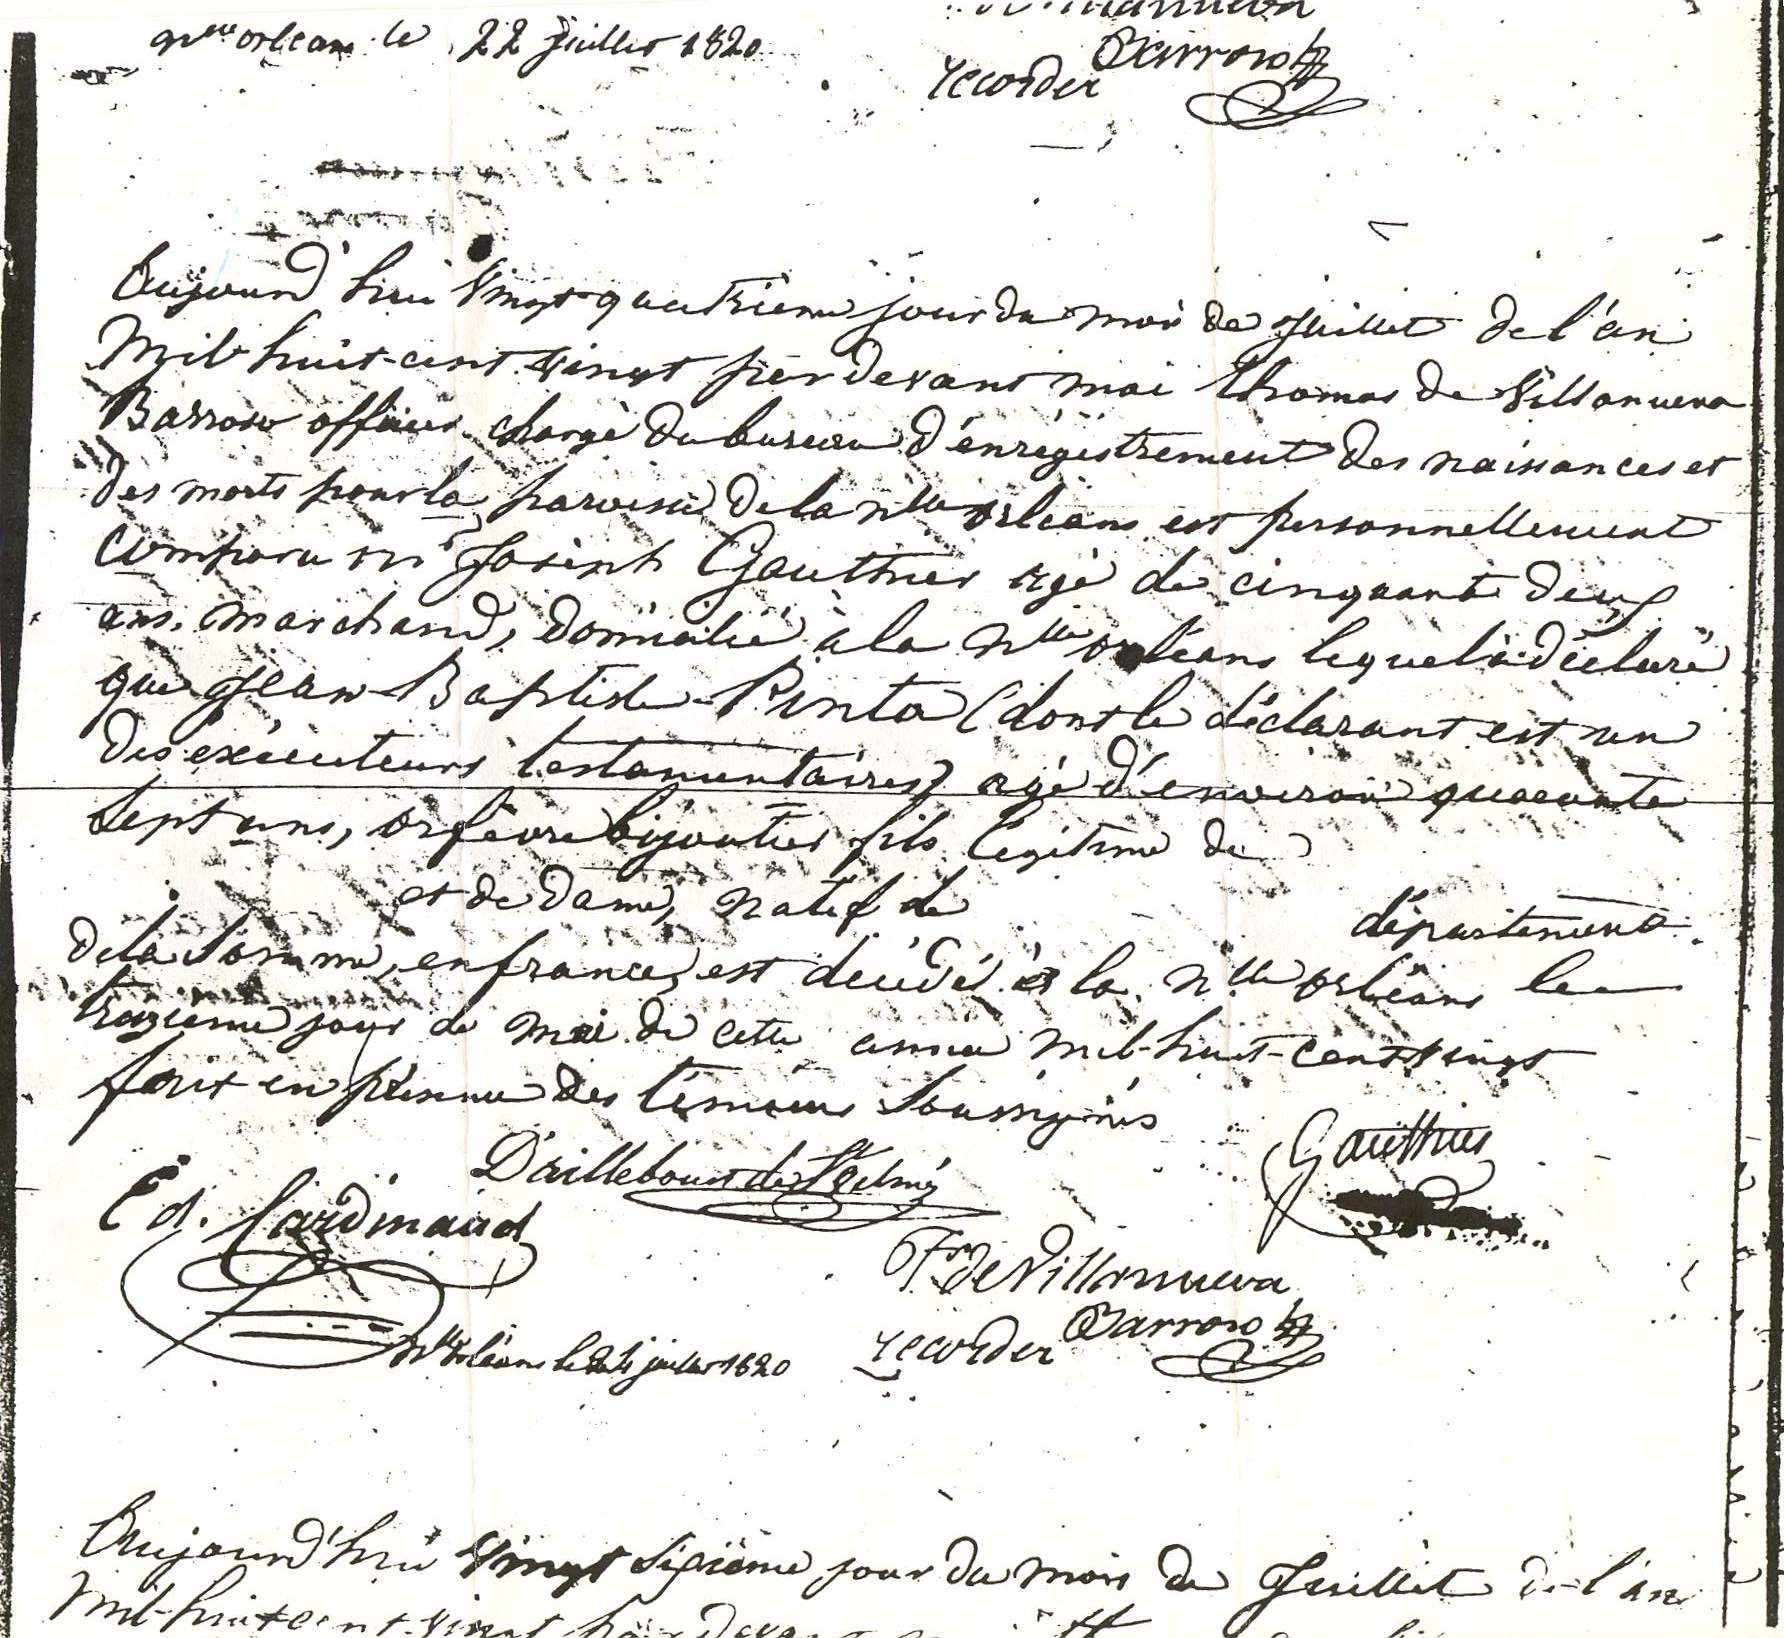 Nlle orleans le 22 juillet 1820
de Villanueva
Barroso
recorder
Aujourd'hui Vingt quatrième jour du mois de Juillet de l'an
Mil huit-cent vingt par devant moi Thomas de Villanueva
Barroso officier chargé du bureau d'énrégistrement des naissances et
des morts pour la paroisse de la nlle orléans est personnellement
Comparu mr Joseph Gauthier agé de cinquante deux
ans, marchand, domicilié à la nlle orléans lequel à déclaré
que Jean-Baptiste Pinta (dont le déclarant est un
des exécuteurs testamentaires) agé d'environ quarante
sept ans, orfèvre bijoutier fils légitime de
et de dame, natif de département
de la Somme, en france, est décédé à la nlle orléans le
treizieme jour de mai de cette année mil-huit-cent vingt
fait en présence des témoins Soussignés
Gauthier
D'aillebout de St Velmé
Ed. Cardinaud
Ts. de Villanueva
Barroso
recorder
Nlle orléans le 24 juillet 1820
Aujourd'hui Vingt Sixième jour du mois de Juillet de l'an
mil-huit cent vingt par devant